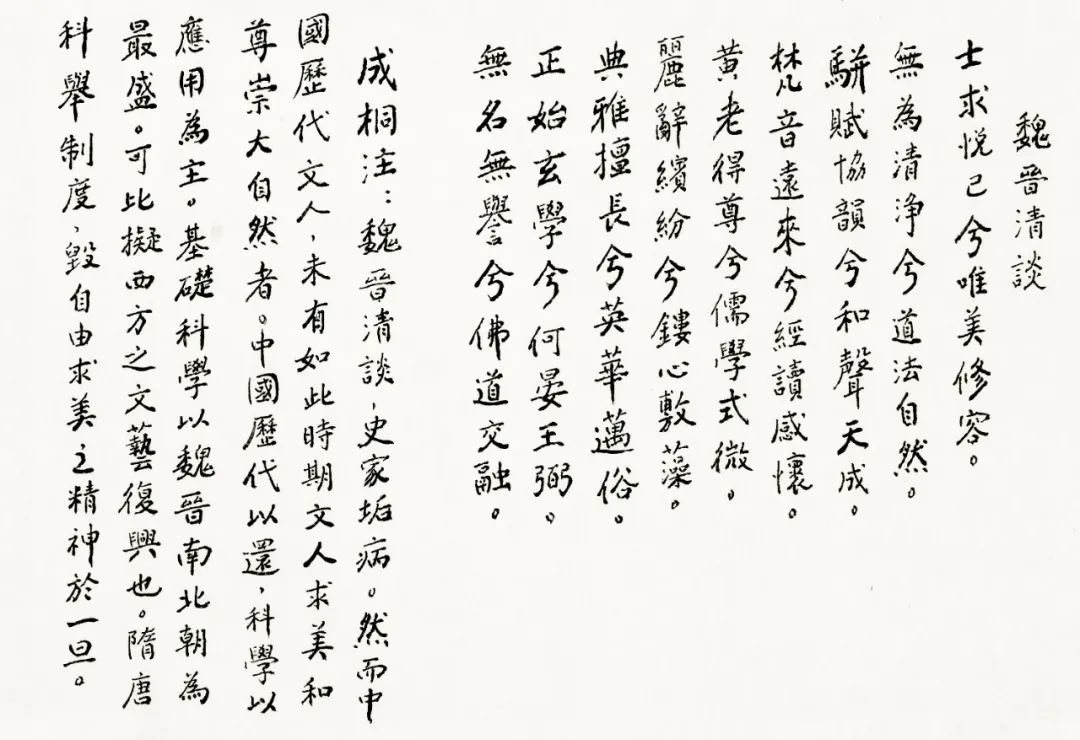 魏晉清談
士求悅己兮唯美修容。
無為清淨兮道法自然。
駢賦協韻兮和聲天成。
梵音遠來兮經讀感懷。
黃老得尊兮儒學式微。
麗辭繽紛兮鏤心敷藻。
典雅擅長兮英華邁俗。
正始玄學兮何晏王弼。
無名無譽兮佛道交融。
成桐注：魏晉清談，史家垢病。然而中
國歷代文人，未有如此時期文人求美和
尊崇大自然者。中國歷代以還，科學以
應用為主。基礎科學以魏晉南北朝為
最盛。可比擬西方之文藝復興也。隋唐
科舉制度，毀自由求美之精神於一旦。